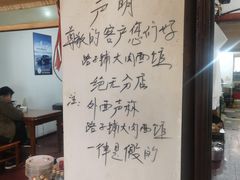 声明
尊敬的客户您们好
路子铺大肉面馆
绝无分店
注:
外面声称
路子铺大肉面馆
一律是假的